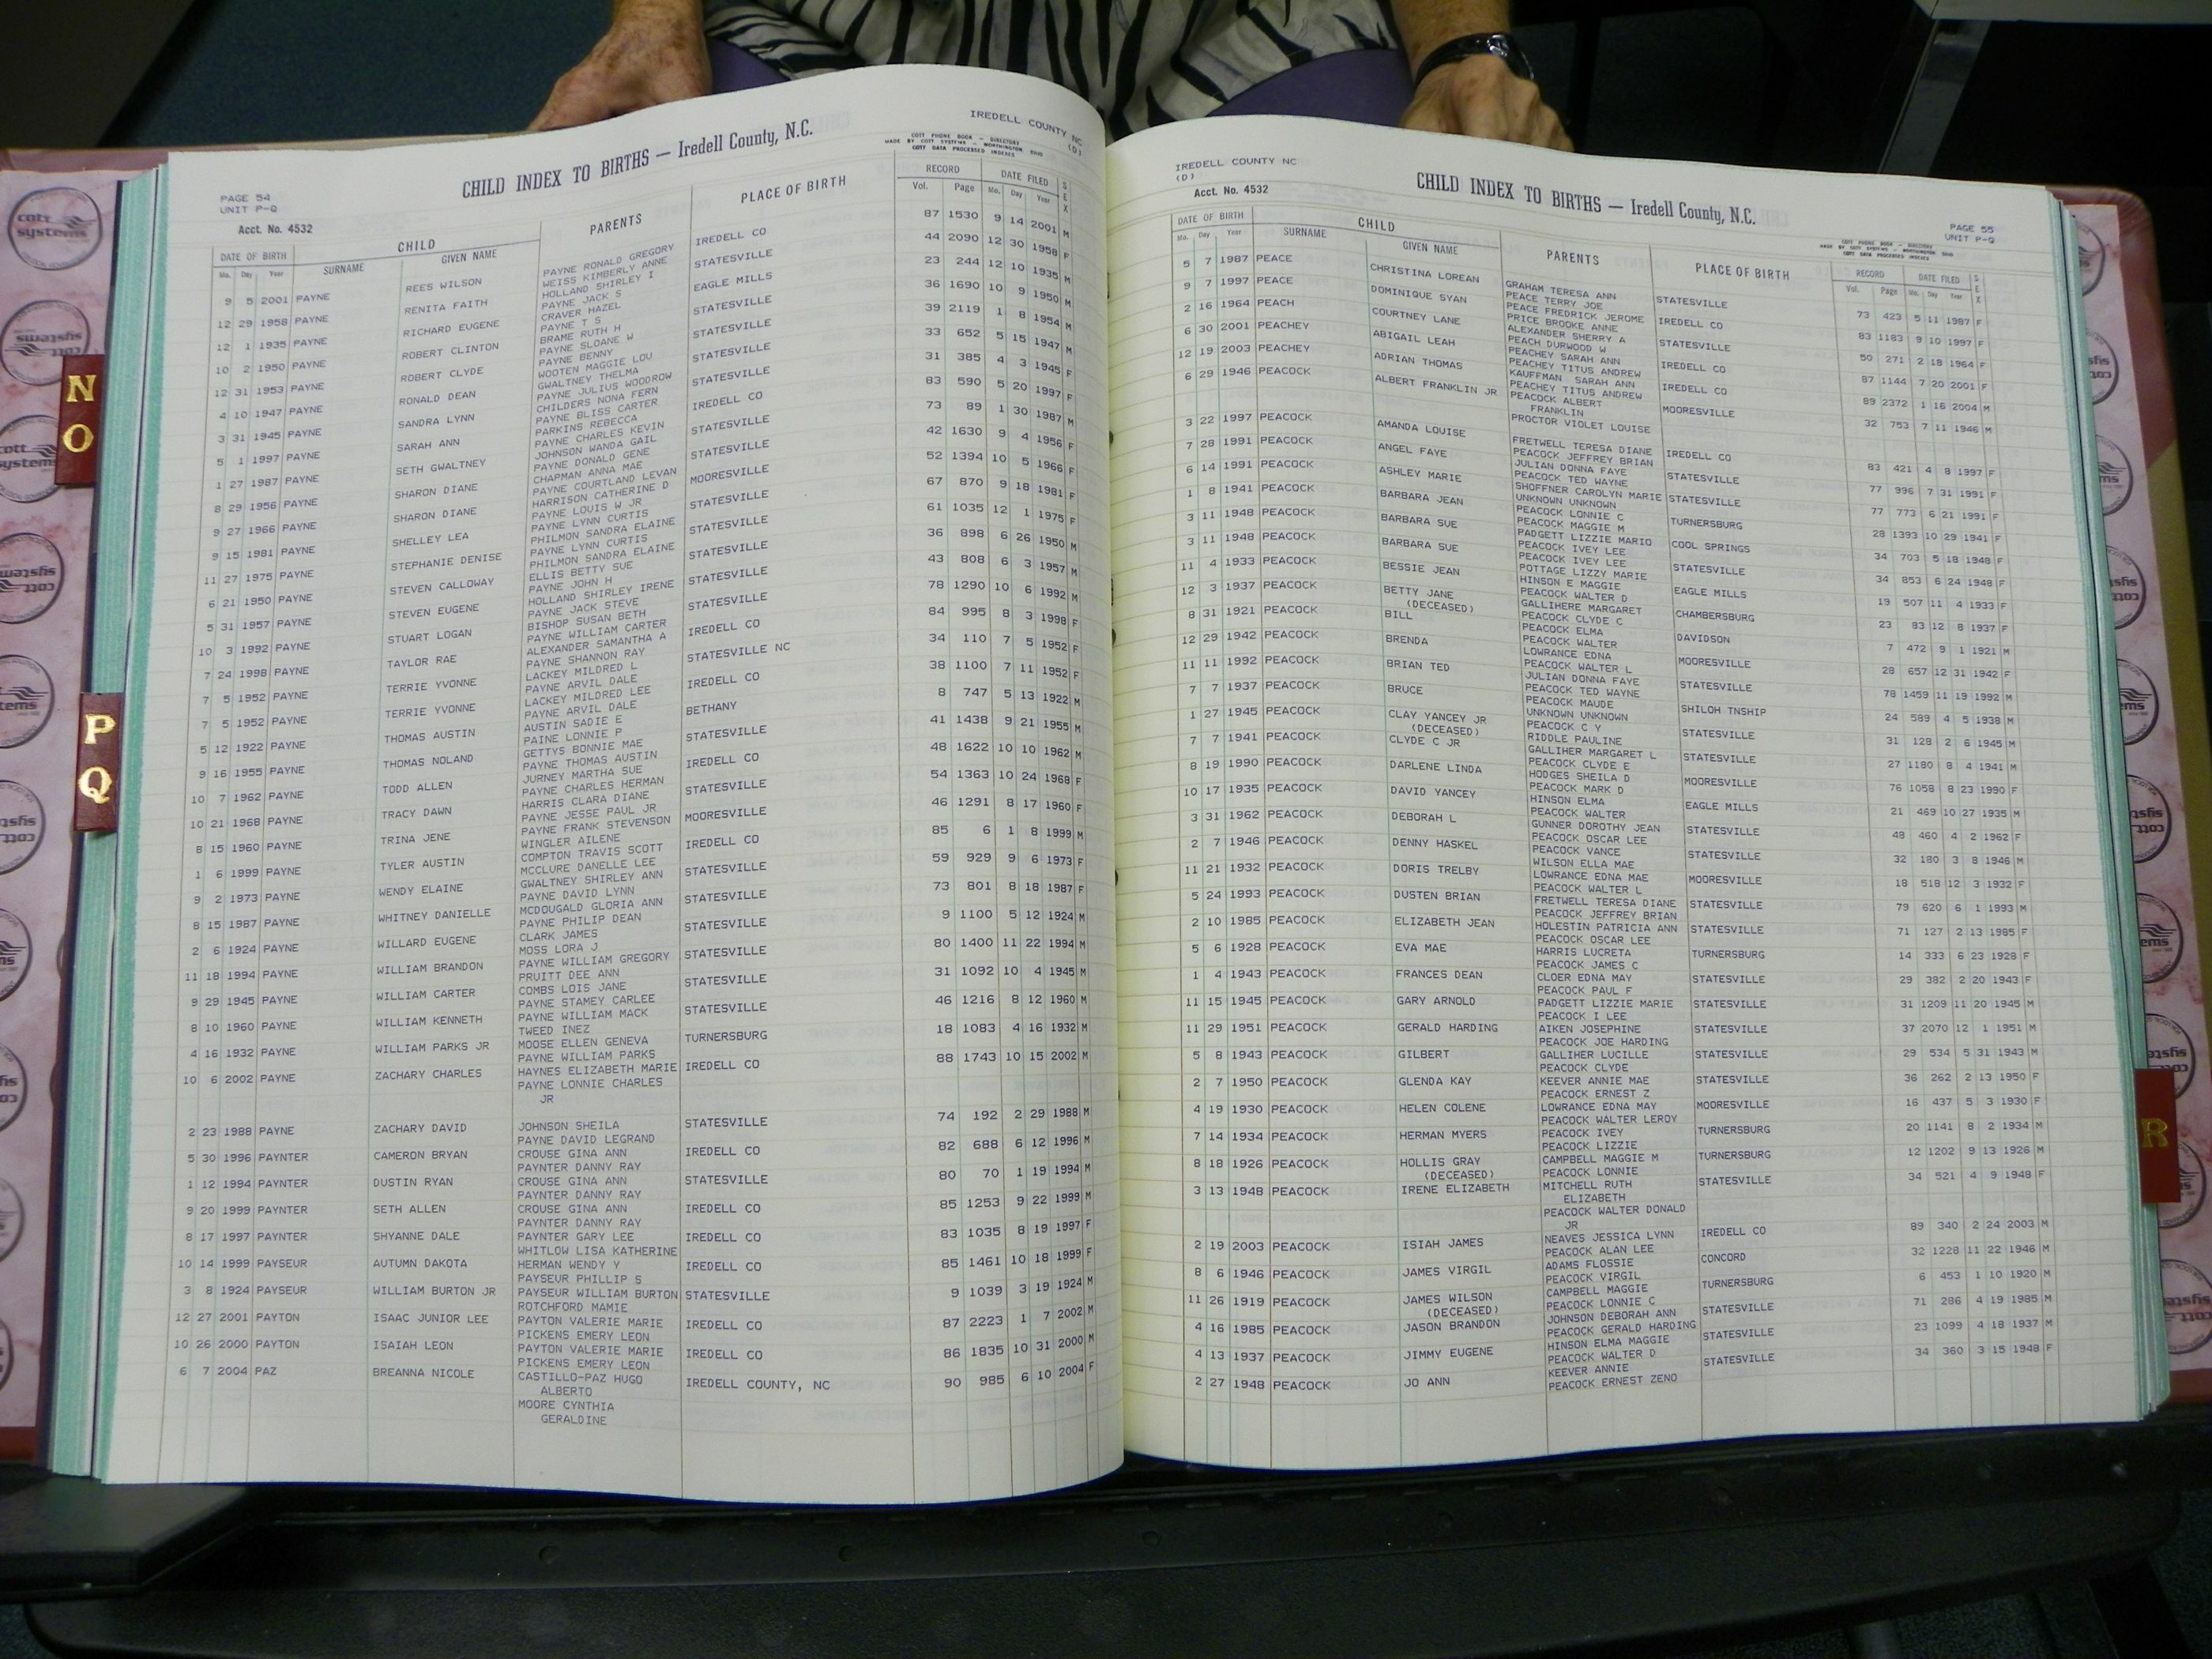 IREDELL COUNTY NC
(D)
COTT PHONE BOOK — DIRECTORY
MADE BY COTT SYSTEMS — WORTHINGTON OHIO
COTT DATA PROCESSED INDEXES
CHILD INDEX TO BIRTHS — Iredell County, N.C.
PAGE 54
UNIT P-Q
Acct. No. 4532
DATE OF BIRTH CHILD PARENTS PLACE OF BIRTH RECORD DATE FILED SEX
Mo. Day Year SURNAME GIVEN NAME Vol. Page Mo. Day Year
9 5 2001 PAYNE REES WILSON PAYNE RONALD GREGORY IREDELL CO 87 1530 9 14 2001 M
WEISS KIMBERLY ANNE
12 29 1958 PAYNE RENITA FAITH HOLLAND SHIRLEY I STATESVILLE 44 2090 12 30 1958 F
PAYNE JACK S
12 1 1935 PAYNE RICHARD EUGENE CRAVER HAZEL EAGLE MILLS 23 244 12 10 1935 M
PAYNE T S
10 2 1950 PAYNE ROBERT CLINTON BRAME RUTH H STATESVILLE 36 1690 10 9 1950 M
PAYNE SLOANE W
12 31 1953 PAYNE ROBERT CLYDE PAYNE BENNY STATESVILLE 39 2119 1 8 1954 M
WOOTEN MAGGIE LOU
4 10 1947 PAYNE RONALD DEAN GWALTNEY THELMA STATESVILLE 33 652 5 15 1947 M
PAYNE JULIUS WOODROW
3 31 1945 PAYNE SANDRA LYNN CHILDERS NONA FERN STATESVILLE 31 385 4 3 1945 F
PAYNE BLISS CARTER
5 1 1997 PAYNE SARAH ANN PARKINS REBECCA STATESVILLE 83 590 5 20 1997 F
PAYNE CHARLES KEVIN
1 27 1987 PAYNE SETH GWALTNEY JOHNSON WANDA GAIL IREDELL CO 73 89 1 30 1987 M
PAYNE DONALD GENE
8 29 1956 PAYNE SHARON DIANE CHAPMAN ANNA MAE STATESVILLE 42 1630 9 4 1956 F
PAYNE COURTLAND LEVAN
9 27 1966 PAYNE SHARON DIANE HARRISON CATHERINE D STATESVILLE 52 1394 10 5 1966 F
PAYNE LOUIS W JR
9 15 1981 PAYNE SHELLEY LEA PAYNE LYNN CURTIS MOORESVILLE 67 870 9 18 1981 F
PHILMON SANDRA ELAINE
11 27 1975 PAYNE STEPHANIE DENISE PAYNE LYNN CURTIS STATESVILLE 61 1035 12 1 1975 F
PHILMON SANDRA ELAINE
6 21 1950 PAYNE STEVEN CALLOWAY ELLIS BETTY SUE STATESVILLE 36 898 6 26 1950 M
PAYNE JOHN H
5 31 1957 PAYNE STEVEN EUGENE HOLLAND SHIRLEY IRENE STATESVILLE 43 808 6 3 1957 M
PAYNE JACK STEVE
10 3 1992 PAYNE STUART LOGAN BISHOP SUSAN BETH STATESVILLE 78 1290 10 6 1992 M
PAYNE WILLIAM CARTER
7 24 1998 PAYNE TAYLOR RAE ALEXANDER SAMANTHA A STATESVILLE 84 995 8 3 1998 F
PAYNE SHANNON RAY
7 5 1952 PAYNE TERRIE YVONNE LACKEY MILDRED L IREDELL CO 34 110 7 5 1952 F
PAYNE ARVIL DALE
7 5 1952 PAYNE TERRIE YVONNE LACKEY MILDRED LEE STATESVILLE NC 38 1100 7 11 1952 F
PAYNE ARVIL DALE
5 12 1922 PAYNE THOMAS AUSTIN AUSTIN SADIE E IREDELL CO 8 747 5 13 1922 M
PAINE LONNIE P
9 16 1955 PAYNE THOMAS NOLAND GETTYS BONNIE MAE BETHANY 41 1438 9 21 1955 M
PAYNE THOMAS AUSTIN
10 7 1962 PAYNE TODD ALLEN JURNEY MARTHA SUE STATESVILLE 48 1622 10 10 1962 M
PAYNE CHARLES HERMAN
10 21 1968 PAYNE TRACY DAWN HARRIS CLARA DIANE IREDELL CO 54 1363 10 24 1968 F
PAYNE JESSE PAUL JR
8 15 1960 PAYNE TRINA JENE PAYNE FRANK STEVENSON STATESVILLE 46 1291 8 17 1960 F
WINGLER AILENE
1 6 1999 PAYNE TYLER AUSTIN COMPTON TRAVIS SCOTT MOORESVILLE 85 6 1 8 1999 M
MCCLURE DANELLE LEE
9 2 1973 PAYNE WENDY ELAINE GWALTNEY SHIRLEY ANN IREDELL CO 59 929 9 6 1973 F
PAYNE DAVID LYNN
8 15 1987 PAYNE WHITNEY DANIELLE MCDOUGALD GLORIA ANN STATESVILLE 73 801 8 18 1987 F
PAYNE PHILIP DEAN
2 6 1924 PAYNE WILLARD EUGENE CLARK JAMES STATESVILLE 9 1100 5 12 1924 M
MOSS LORA J
11 18 1994 PAYNE WILLIAM BRANDON PAYNE WILLIAM GREGORY STATESVILLE 80 1400 11 22 1994 M
PRUITT DEE ANN
9 29 1945 PAYNE WILLIAM CARTER COMBS LOIS JANE STATESVILLE 31 1092 10 4 1945 M
PAYNE STAMEY CARLEE
8 10 1960 PAYNE WILLIAM KENNETH PAYNE WILLIAM MACK STATESVILLE 46 1216 8 12 1960 M
TWEED INEZ
4 16 1932 PAYNE WILLIAM PARKS JR MOOSE ELLEN GENEVA TURNERSBURG 18 1083 4 16 1932 M
PAYNE WILLIAM PARKS
10 6 2002 PAYNE ZACHARY CHARLES HAYNES ELIZABETH MARIE IREDELL CO 88 1743 10 15 2002 M
PAYNE LONNIE CHARLES
JR
2 23 1988 PAYNE ZACHARY DAVID JOHNSON SHEILA STATESVILLE 74 192 2 29 1988 M
PAYNE DAVID LEGRAND
5 30 1996 PAYNTER CAMERON BRYAN CROUSE GINA ANN IREDELL CO 82 688 6 12 1996 M
PAYNTER DANNY RAY
1 12 1994 PAYNTER DUSTIN RYAN CROUSE GINA ANN STATESVILLE 80 70 1 19 1994 M
PAYNTER DANNY RAY
9 20 1999 PAYNTER SETH ALLEN CROUSE GINA ANN IREDELL CO 85 1253 9 22 1999 M
PAYNTER DANNY RAY
8 17 1997 PAYNTER SHYANNE DALE PAYNTER GARY LEE IREDELL CO 83 1035 8 19 1997 F
WHITLOW LISA KATHERINE
10 14 1999 PAYSEUR AUTUMN DAKOTA HERMAN WENDY Y IREDELL CO 85 1461 10 18 1999 F
PAYSEUR PHILLIP S
3 8 1924 PAYSEUR WILLIAM BURTON JR PAYSEUR WILLIAM BURTON STATESVILLE 9 1039 3 19 1924 M
ROTCHFORD MAMIE
12 27 2001 PAYTON ISAAC JUNIOR LEE PAYTON VALERIE MARIE IREDELL CO 87 2223 1 7 2002 M
PICKENS EMERY LEON
10 26 2000 PAYTON ISAIAH LEON PAYTON VALERIE MARIE IREDELL CO 86 1835 10 31 2000 M
PICKENS EMERY LEON
6 7 2004 PAZ BREANNA NICOLE CASTILLO-PAZ HUGO IREDELL COUNTY, NC 90 985 6 10 2004 F
ALBERTO
MOORE CYNTHIA
GERALDINE
IREDELL COUNTY NC
(D)
Acct. No. 4532
CHILD INDEX TO BIRTHS — Iredell County, N.C.
PAGE 55
UNIT P-Q
COTT PHONE BOOK — DIRECTORY
MADE BY COTT SYSTEMS — WORTHINGTON OHIO
COTT DATA PROCESSED INDEXES
DATE OF BIRTH CHILD PARENTS PLACE OF BIRTH RECORD DATE FILED SEX
Mo. Day Year SURNAME GIVEN NAME Vol. Page Mo. Day Year
5 7 1987 PEACE CHRISTINA LOREAN GRAHAM TERESA ANN STATESVILLE 73 423 5 11 1987 F
PEACE TERRY JOE
9 7 1997 PEACE DOMINIQUE SYAN PEACE FREDRICK JEROME IREDELL CO 83 1183 9 10 1997 F
PRICE BROOKE ANNE
2 16 1964 PEACH COURTNEY LANE ALEXANDER SHERRY A STATESVILLE 50 271 2 18 1964 F
PEACH DURWOOD W
6 30 2001 PEACHEY ABIGAIL LEAH PEACHEY SARAH ANN IREDELL CO 87 1144 7 20 2001 F
PEACHEY TITUS ANDREW
12 19 2003 PEACHEY ADRIAN THOMAS KAUFFMAN SARAH ANN IREDELL CO 89 2372 1 16 2004 M
PEACHEY TITUS ANDREW
6 29 1946 PEACOCK ALBERT FRANKLIN JR PEACOCK ALBERT MOORESVILLE 32 753 7 11 1946 M
FRANKLIN
PROCTOR VIOLET LOUISE
3 22 1997 PEACOCK AMANDA LOUISE FRETWELL TERESA DIANE IREDELL CO 83 421 4 8 1997 F
PEACOCK JEFFREY BRIAN
7 28 1991 PEACOCK ANGEL FAYE JULIAN DONNA FAYE STATESVILLE 77 996 7 31 1991 F
PEACOCK TED WAYNE
6 14 1991 PEACOCK ASHLEY MARIE SHOFFNER CAROLYN MARIE STATESVILLE 77 773 6 21 1991 F
UNKNOWN UNKNOWN
1 8 1941 PEACOCK BARBARA JEAN PEACOCK LONNIE C TURNERSBURG 28 1393 10 29 1941 F
PEACOCK MAGGIE M
3 11 1948 PEACOCK BARBARA SUE PADGETT LIZZIE MARIO COOL SPRINGS 34 703 5 18 1948 F
PEACOCK IVEY LEE
3 11 1948 PEACOCK BARBARA SUE PEACOCK IVEY LEE STATESVILLE 34 853 6 24 1948 F
POTTAGE LIZZY MARIE
11 4 1933 PEACOCK BESSIE JEAN HINSON E MAGGIE EAGLE MILLS 19 507 11 4 1933 F
PEACOCK WALTER D
12 3 1937 PEACOCK BETTY JANE GALLIHERE MARGARET CHAMBERSBURG 23 83 12 8 1937 F
(DECEASED) PEACOCK CLYDE C
8 31 1921 PEACOCK BILL PEACOCK ELMA DAVIDSON 7 472 9 1 1921 M
PEACOCK WALTER
12 29 1942 PEACOCK BRENDA LOWRANCE EDNA MOORESVILLE 28 657 12 31 1942 F
PEACOCK WALTER L
11 11 1992 PEACOCK BRIAN TED JULIAN DONNA FAYE STATESVILLE 78 1459 11 19 1992 M
PEACOCK TED WAYNE
7 7 1937 PEACOCK BRUCE PEACOCK MAUDE SHILOH TNSHIP 24 589 4 5 1938 M
UNKNOWN UNKNOWN
1 27 1945 PEACOCK CLAY YANCEY JR PEACOCK C Y STATESVILLE 31 128 2 6 1945 M
(DECEASED) RIDDLE PAULINE
7 7 1941 PEACOCK CLYDE C JR GALLIHER MARGARET L STATESVILLE 27 1180 8 4 1941 M
PEACOCK CLYDE E
8 19 1990 PEACOCK DARLENE LINDA HODGES SHEILA D MOORESVILLE 76 1058 8 23 1990 F
PEACOCK MARK D
10 17 1935 PEACOCK DAVID YANCEY HINSON ELMA EAGLE MILLS 21 469 10 27 1935 M
PEACOCK WALTER
3 31 1962 PEACOCK DEBORAH L GUNNER DOROTHY JEAN STATESVILLE 48 460 4 2 1962 F
PEACOCK OSCAR LEE
2 7 1946 PEACOCK DENNY HASKEL PEACOCK VANCE STATESVILLE 32 180 3 8 1946 M
WILSON ELLA MAE
11 21 1932 PEACOCK DORIS TRELBY LOWRANCE EDNA MAE MOORESVILLE 18 518 12 3 1932 F
PEACOCK WALTER L
5 24 1993 PEACOCK DUSTEN BRIAN FRETWELL TERESA DIANE STATESVILLE 79 620 6 1 1993 M
PEACOCK JEFFREY BRIAN
2 10 1985 PEACOCK ELIZABETH JEAN HOLESTIN PATRICIA ANN STATESVILLE 71 127 2 13 1985 F
PEACOCK OSCAR LEE
5 6 1928 PEACOCK EVA MAE HARRIS LUCRETA TURNERSBURG 14 333 6 23 1928 F
PEACOCK JAMES C
1 4 1943 PEACOCK FRANCES DEAN CLOER EDNA MAY STATESVILLE 29 382 2 20 1943 F
PEACOCK PAUL F
11 15 1945 PEACOCK GARY ARNOLD PADGETT LIZZIE MARIE STATESVILLE 31 1209 11 20 1945 M
PEACOCK I LEE
11 29 1951 PEACOCK GERALD HARDING AIKEN JOSEPHINE STATESVILLE 37 2070 12 1 1951 M
PEACOCK JOE HARDING
5 8 1943 PEACOCK GILBERT GALLIHER LUCILLE STATESVILLE 29 534 5 31 1943 M
PEACOCK CLYDE
2 7 1950 PEACOCK GLENDA KAY KEEVER ANNIE MAE STATESVILLE 36 262 2 13 1950 F
PEACOCK ERNEST Z
4 19 1930 PEACOCK HELEN COLENE LOWRANCE EDNA MAY MOORESVILLE 16 437 5 3 1930 F
PEACOCK WALTER LEROY
7 14 1934 PEACOCK HERMAN MYERS PEACOCK IVEY TURNERSBURG 20 1141 8 2 1934 M
PEACOCK LIZZIE
8 18 1926 PEACOCK HOLLIS GRAY CAMPBELL MAGGIE M TURNERSBURG 12 1202 9 13 1926 M
(DECEASED) PEACOCK LONNIE
3 13 1948 PEACOCK IRENE ELIZABETH MITCHELL RUTH STATESVILLE 34 521 4 9 1948 F
ELIZABETH
PEACOCK WALTER DONALD
JR
2 19 2003 PEACOCK ISIAH JAMES NEAVES JESSICA LYNN IREDELL CO 89 340 2 24 2003 M
PEACOCK ALAN LEE
8 6 1946 PEACOCK JAMES VIRGIL ADAMS FLOSSIE CONCORD 32 1228 11 22 1946 M
PEACOCK VIRGIL
11 26 1919 PEACOCK JAMES WILSON CAMPBELL MAGGIE TURNERSBURG 6 453 1 10 1920 M
(DECEASED) PEACOCK LONNIE C
4 16 1985 PEACOCK JASON BRANDON JOHNSON DEBORAH ANN STATESVILLE 71 286 4 19 1985 M
PEACOCK GERALD HARDING
4 13 1937 PEACOCK JIMMY EUGENE HINSON ELMA MAGGIE STATESVILLE 23 1099 4 18 1937 M
PEACOCK WALTER D
2 27 1948 PEACOCK JO ANN KEEVER ANNIE STATESVILLE 34 360 3 15 1948 F
PEACOCK ERNEST ZENO
N
O
P
Q
R
cott
systems